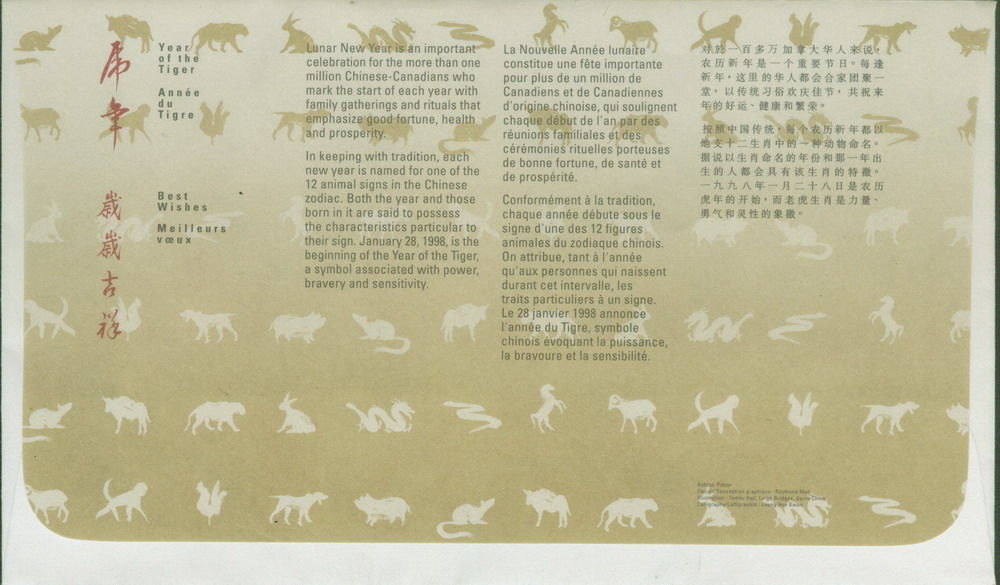 虎年
Year
of the
Tiger
Année
du
Tigre
歳歳吉祥
Best
Wishes
Meilleurs
vœux
Lunar New Year is an important
celebration for the more than one
million Chinese-Canadians who
mark the start of each year with
family gatherings and rituals that
emphasize good fortune, health
and prosperity.
In keeping with tradition, each
new year is named for one of the
12 animal signs in the Chinese
zodiac. Both the year and those
born in it are said to possess
the characteristics particular to
their sign. January 28, 1998, is the
beginning of the Year of the Tiger,
a symbol associated with power,
bravery and sensitivity.
La Nouvelle Année lunaire
constitue une fête importante
pour plus de un million de
Canadiens et de Canadiennes
d'origine chinoise, qui soulignent
chaque début de l'an par des
réunions familiales et des
cérémonies rituelles porteuses
de bonne fortune, de santé et
de prospérité.
Conformément à la tradition,
chaque année débute sous le
signe d'une des 12 figures
animales du zodiaque chinois.
On attribue, tant à l'année
qu'aux personnes qui naissent
durant cet intervalle, les
traits particuliers à un signe.
Le 28 janvier 1998 annonce
l'année du Tigre, symbole
chinois évoquant la puissance,
la bravoure et la sensibilité.
对於一百多万加拿大华人来说，
农历新年是一个重要节日。每逢
新年，这里的华人都会合家团聚一
堂，以传统习俗欢庆佳节，共祝来
年的好运、健康和繁荣。
按照中国传统，每个农历新年都以
地支十二生肖中的一种动物命名。
据说以生肖命名的年份和那一年出
生的人都会具有该生肖的特徵。
一九九八年一月二十八日是农历
虎年的开始，而老虎生肖是力量、
勇气和灵性的象徵。
Ashton Potter
Design/Conception graphique : Raymond Mah
Illustration : Tammi Hall, Leigh Bridges,
Calligraphy/Calligraphie :